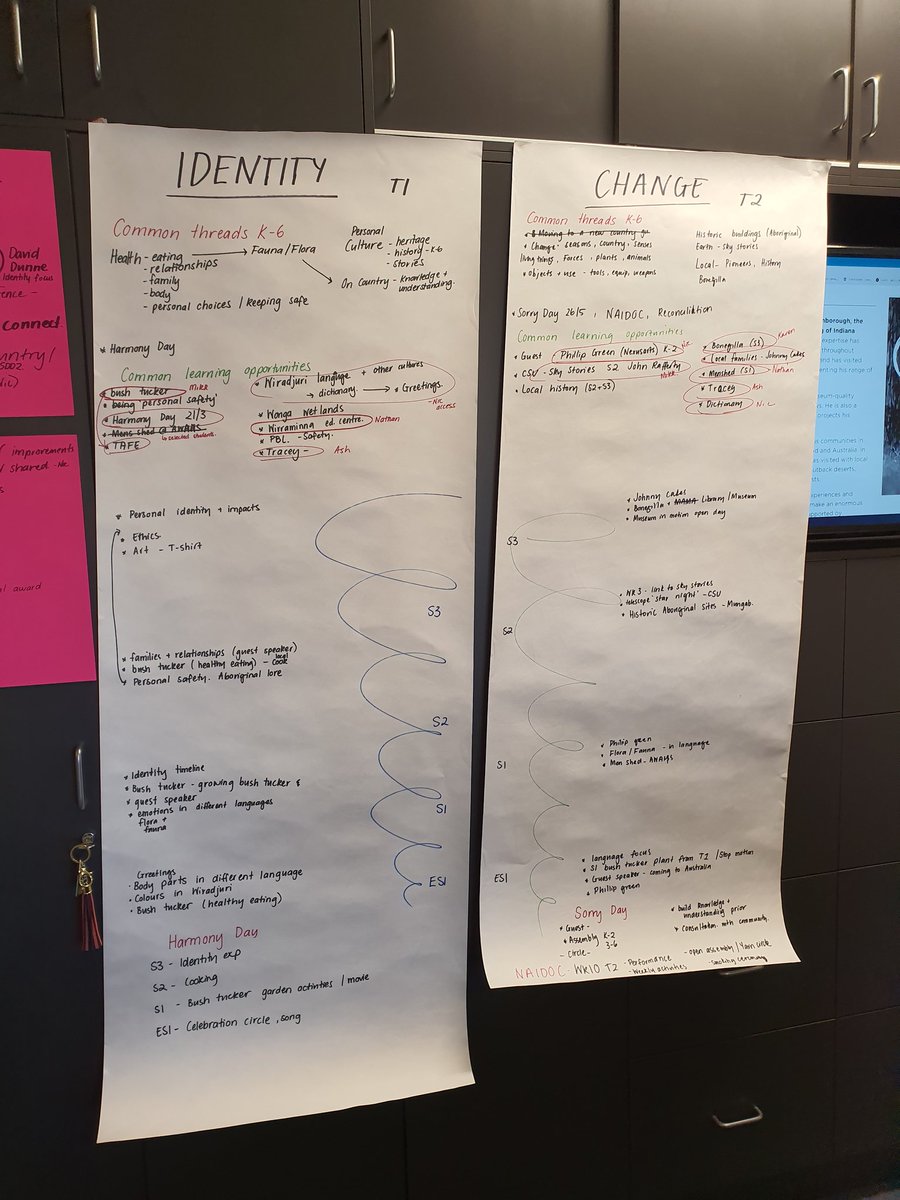 David
Dunne
Identity focus
Connect.
improvements
shared - Nic
award
IDENTITY T1
Common threads K-6
Health - eating → Fauna/Flora
- relationships
- family
- body
- personal choices / keeping safe
Personal
Culture - heritage
- history - K-6
- stories
On Country - Knowledge +
understanding.
* Harmony Day
Common learning opportunities
* bush tucker Mikk
* being personal safety'
* Harmony Day 21/3
* Mens shed @ AWAHS
↳ selected students.
* TAFE
* Niradjuri language + other cultures
→ dictionary → * Greetings.
- Nic
access
* Wonga wetlands
* Wirraminna ed. centre. Nathan
* PBL - Safety.
* Tracey - Ash
* Personal identity + impacts
* Ethics.
* Art - T-shirt
* families + relationships (guest speaker)
* bush tucker (healthy eating) - local cook
* Personal safety. Aboriginal lore
* Identity timeline
* Bush tucker - growing bush tucker &
* guest speaker
* emotions in different languages
flora +
fauna
Greetings
• Body parts in different language
• Colours in Wiradjuri
• Bush tucker (healthy eating)
S3
S2
S1
ES1
Harmony Day
S3 - Identity exp
S2 - Cooking
S1 - Bush tucker garden activities / movie
ES1 - Celebration circle, song
CHANGE T2
Common threads K-6
* Moving to a new country
* Change' seasons, country, senses
living things, forces, plants, animals
* Objects + use - tools, equip, weapons
Historic buildings (Aboriginal)
Earth - sky stories
Local - Pioneers, History
Bonegilla
* Sorry Day 26/5, NAIDOC, Reconciliation
Common learning opportunities
* Guest Phillip Green (Newsorts) K-2 Nic
* CSU - Sky Stories S2 John Rafferty
* Local history (S2+S3)
* Bonegilla (S3) Karen
* Local families - Johnny Cakes
* Menshed (S1) Nathan
* Tracey Ash
* Dictionary Nic
* Johnny Cakes
* Bonegilla + MAMA Library / Museum
* Museum in motion open day
S3
* WK 3 - link to sky stories
* telescope 'star night' - CSU
* Historic Aboriginal sites - Mungab.
S2
* Philip green
* Flora / Fauna - in language
* Men shed - AWAHS
S1
* language focus
* S1 bush tucker plant from T2 / Stop motion
* Guest speaker - coming to Australia
* Phillip green
ES1
Sorry Day
* Guest -
* Assembly K-2
3-6
- Circle -
* build knowledge +
understanding prior
* Consultation with community.
NAIDOC - WK10 T2 - Performance
- Weekly activities
- open assembly / Yarn circle
- Smoking ceremony